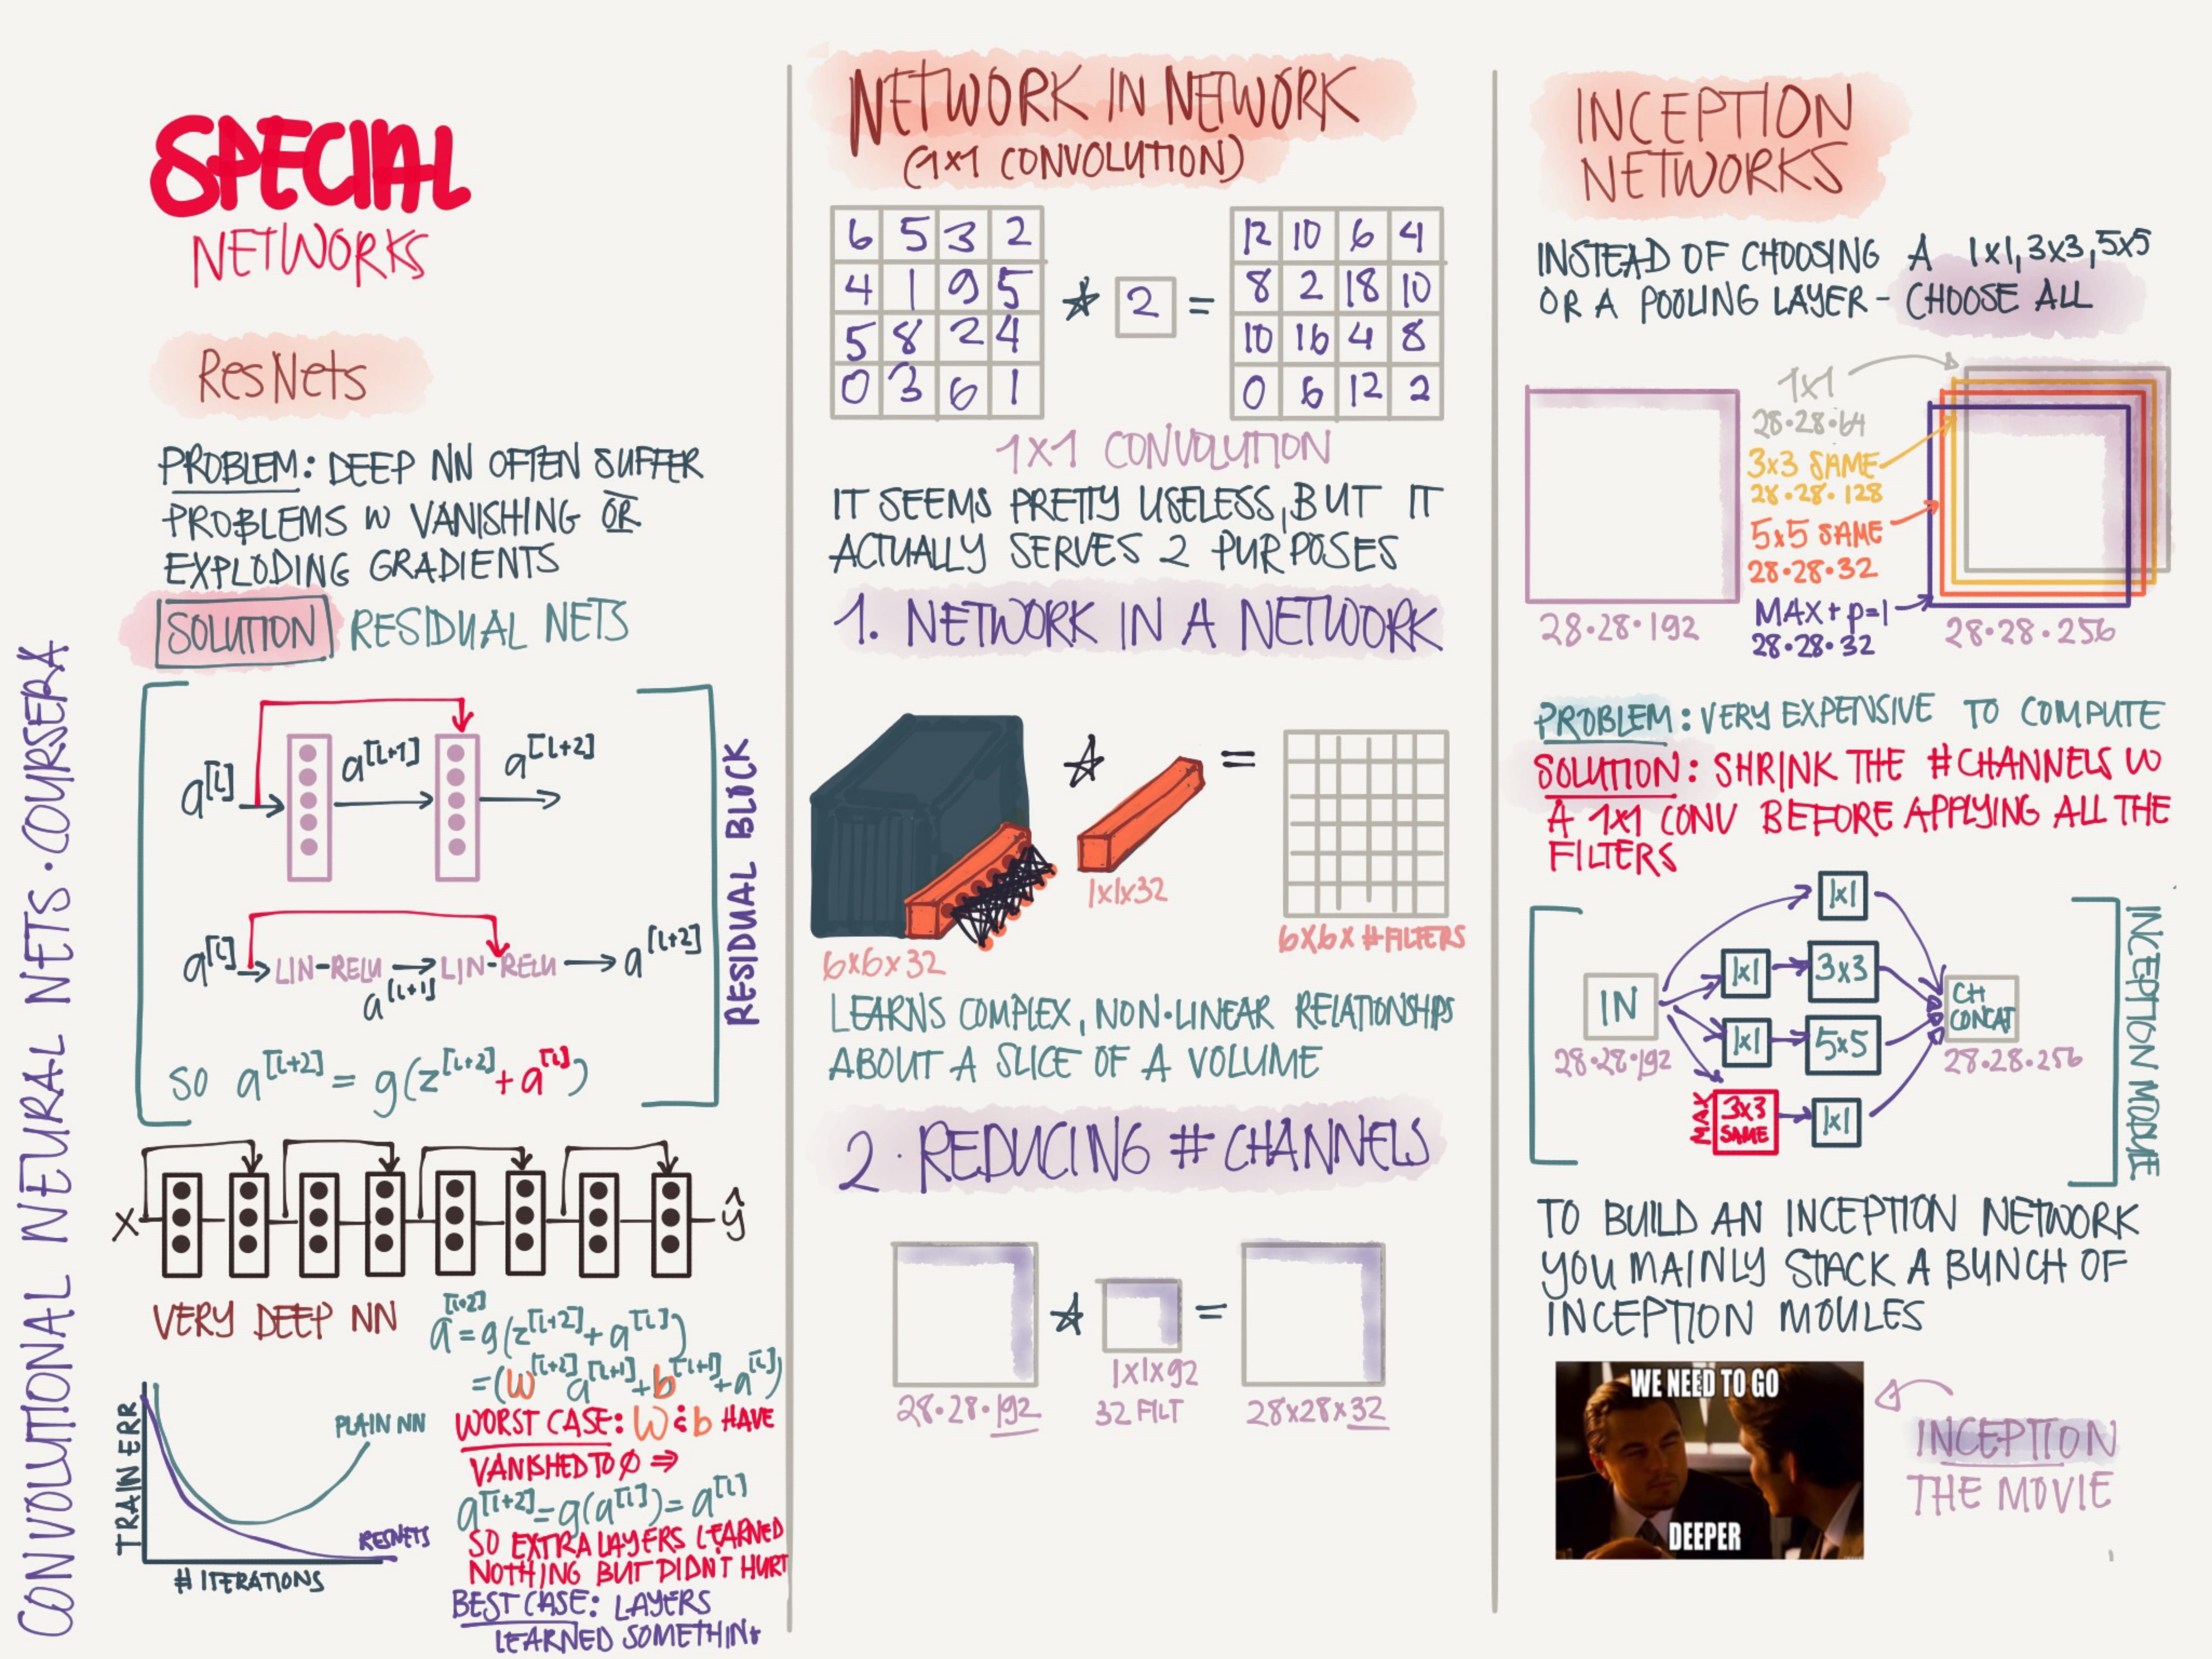 CONVOLUTIONAL NEURAL NETS · COURSERA
SPECIAL
NETWORKS
ResNets
PROBLEM: DEEP NN OFTEN SUFFER
PROBLEMS W VANISHING OR
EXPLODING GRADIENTS
SOLUTION RESIDUAL NETS
a[l] a[l+1] a[l+2]
a[l] → LIN-RELU → LIN-RELU → a[l+2]
a[l+1]
SO a[l+2] = g(z[l+2] + a[l])
RESIDUAL BLOCK
X ŷ
VERY DEEP NN
a[l+2] = g(z[l+2] + a[l])
= (W[l+2] a[l+1] + b[l+1] + a[l])
WORST CASE: W & b HAVE
VANISHED TO Ø ⇒
a[l+2] = g(a[l]) = a[l]
SO EXTRA LAYERS LEARNED
NOTHING BUT DIDN'T HURT
BEST CASE: LAYERS
LEARNED SOMETHING
TRAIN ERR
PLAIN NN
RESNETS
# ITERATIONS
NETWORK IN NETWORK
(1x1 CONVOLUTION)
6 5 3 2
4 1 9 5
5 8 2 4
0 3 6 1
* 2 =
12 10 6 4
8 2 18 10
10 16 4 8
0 6 12 2
1x1 CONVOLUTION
IT SEEMS PRETTY USELESS, BUT IT
ACTUALLY SERVES 2 PURPOSES
1. NETWORK IN A NETWORK
* =
6x6x32
1x1x32
6x6x #FILTERS
LEARNS COMPLEX, NON·LINEAR RELATIONSHIPS
ABOUT A SLICE OF A VOLUME
2. REDUCING # CHANNELS
* =
28·28·192
1x1x92
32 FILT
28x28x32
INCEPTION
NETWORKS
INSTEAD OF CHOOSING A 1x1, 3x3, 5x5
OR A POOLING LAYER - CHOOSE ALL
1x1
28·28·64
3x3 SAME
28·28·128
5x5 SAME
28·28·32
MAX + p=1
28·28·32
28·28·192
28·28·256
PROBLEM: VERY EXPENSIVE TO COMPUTE
SOLUTION: SHRINK THE #CHANNELS W
A 1x1 CONV BEFORE APPLYING ALL THE
FILTERS
1x1
1x1 3x3
IN
CH
CONCAT
1x1 5x5
28·28·192
28·28·256
MAX
3x3
SAME
1x1
INCEPTION MODULE
TO BUILD AN INCEPTION NETWORK
YOU MAINLY STACK A BUNCH OF
INCEPTION MOULES
WE NEED TO GO
DEEPER
INCEPTION
THE MOVIE